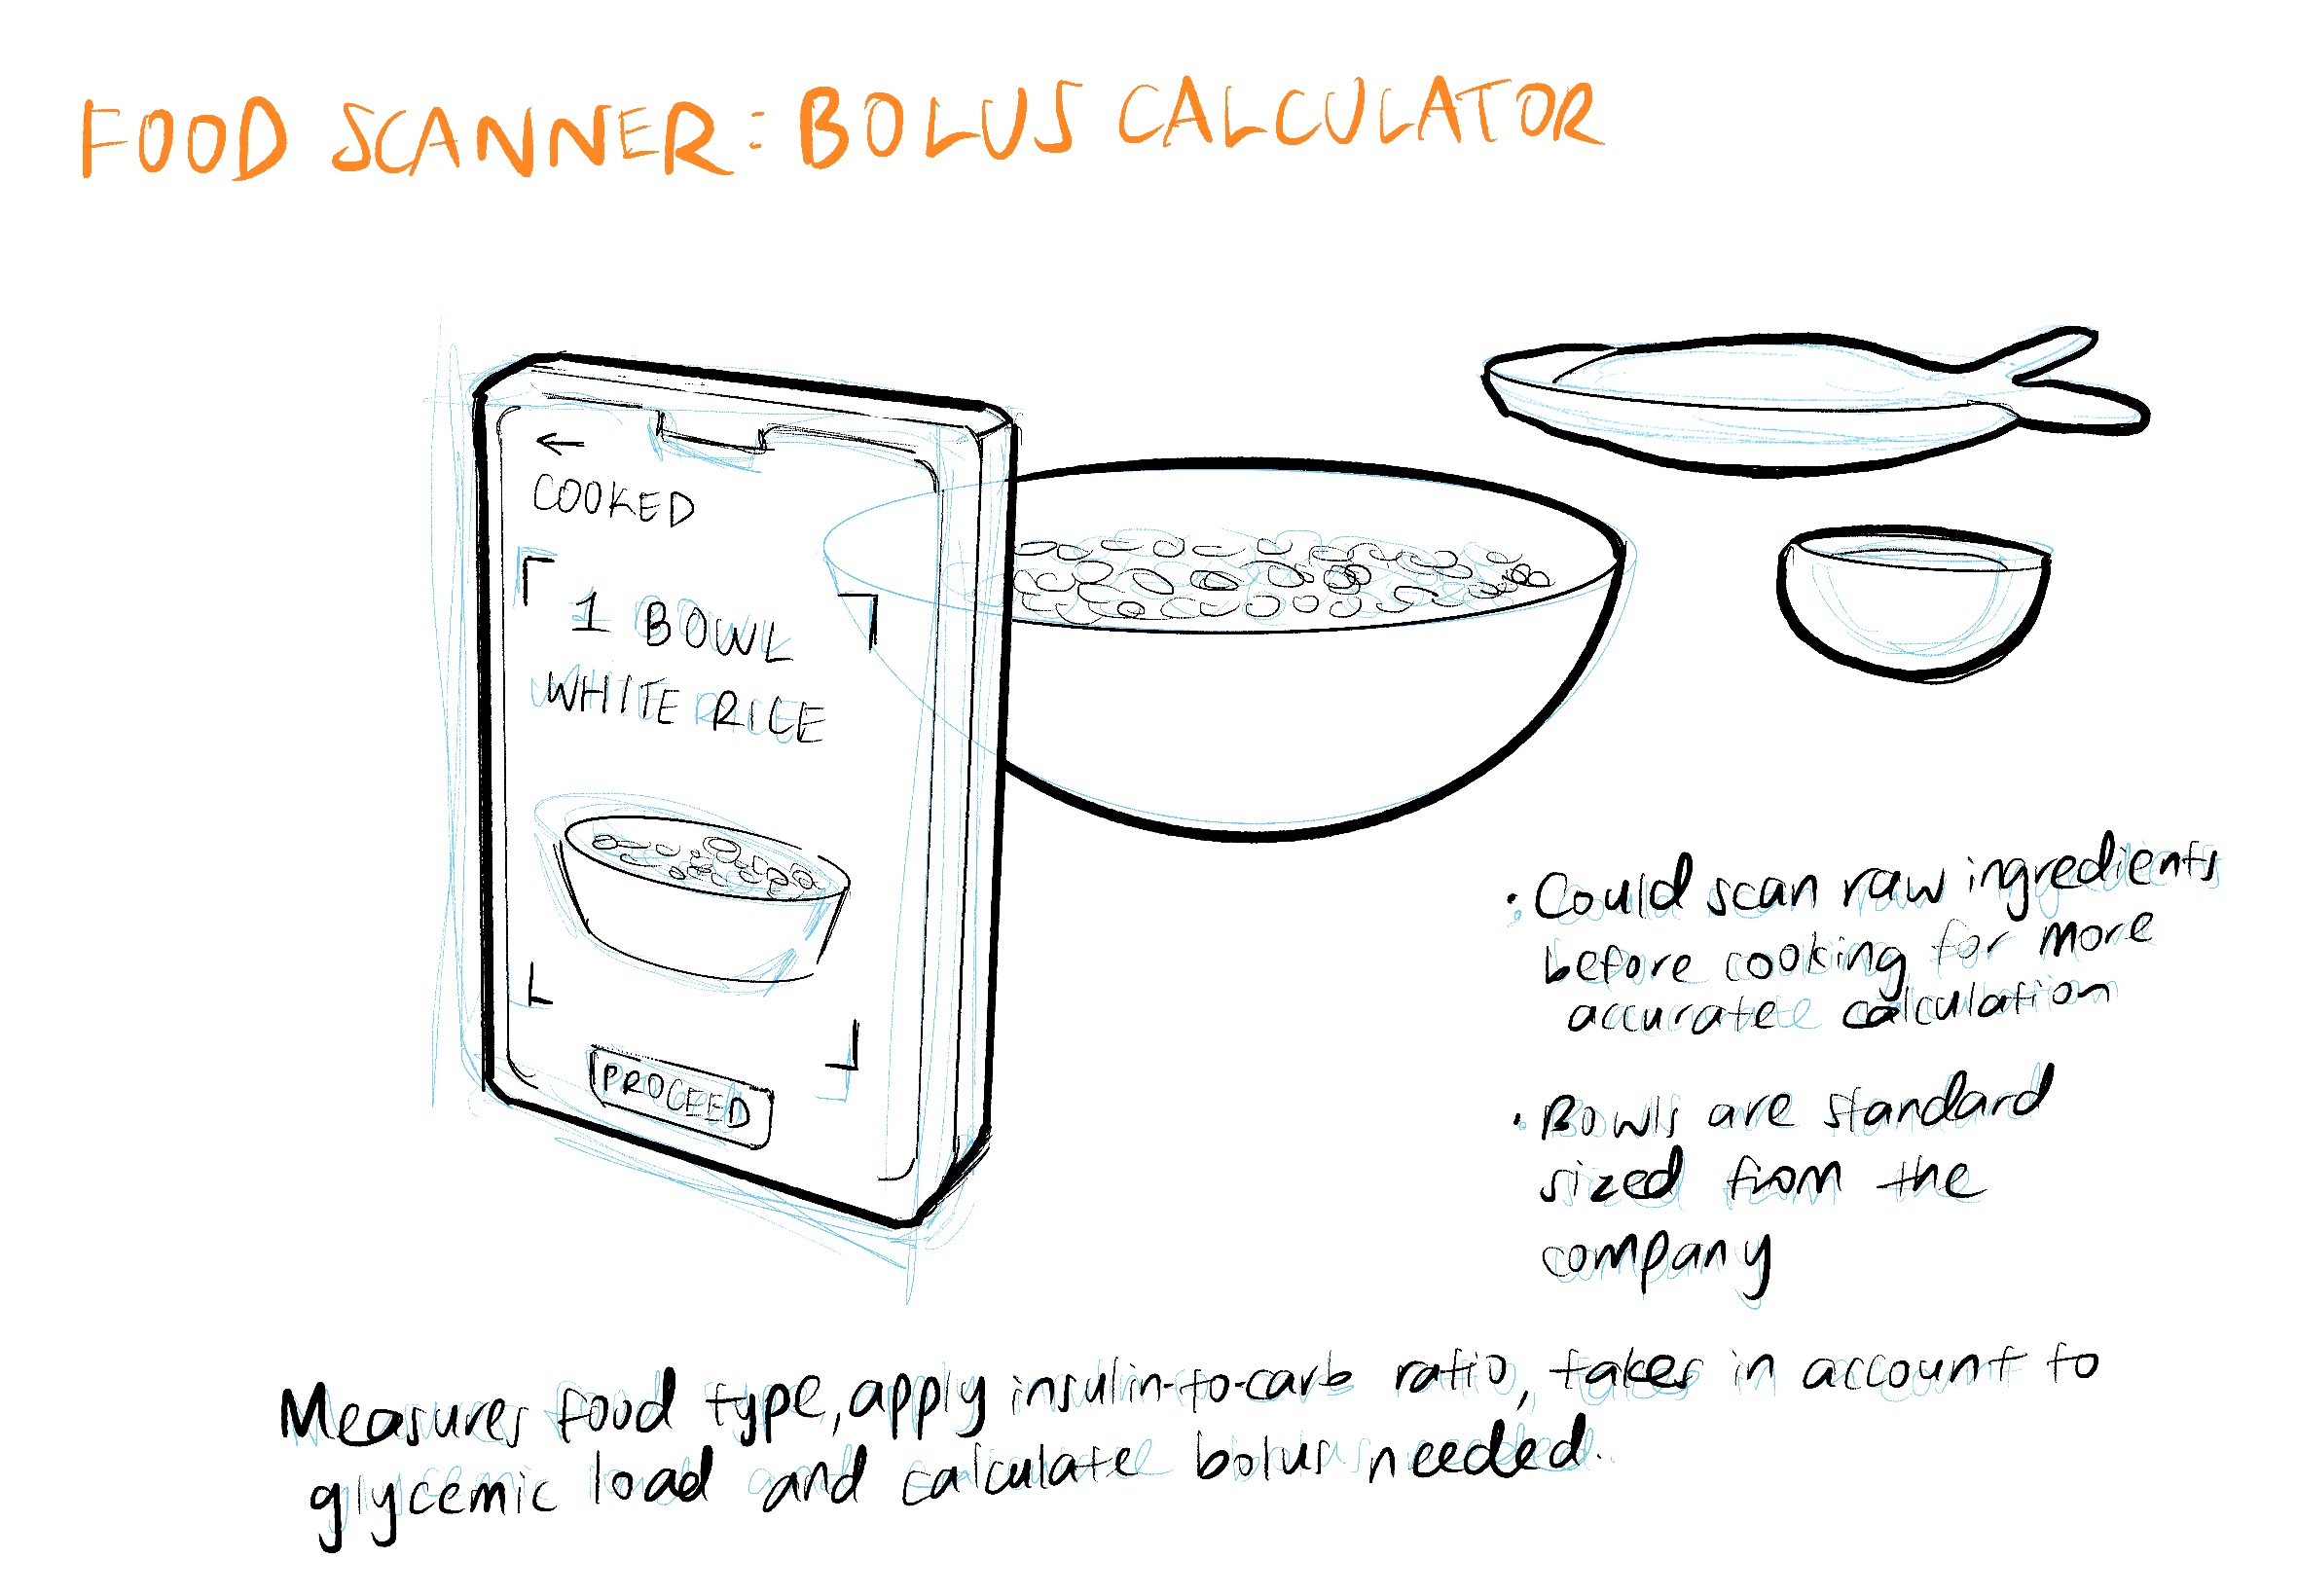 FOOD SCANNER: BOLUS CALCULATOR
←
COOKED
1 BOWL
WHITE RICE
PROCEED
· Could scan raw ingredients
before cooking for more
accurate calculation
· Bowls are standard
sized from the
company
Measures food type, apply insulin-to-carb ratio, takes in account to
glycemic load and calculate bolus needed.